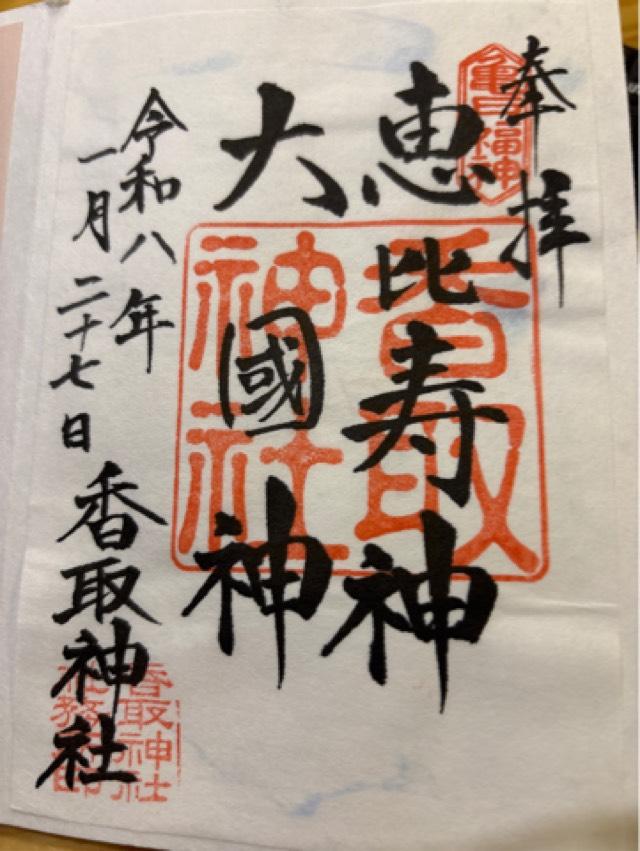 奉拝
亀戸七福神
恵比寿神
大國神
香取神社
令和八年
一月二十七日
香取神社
香取神社
社務所印